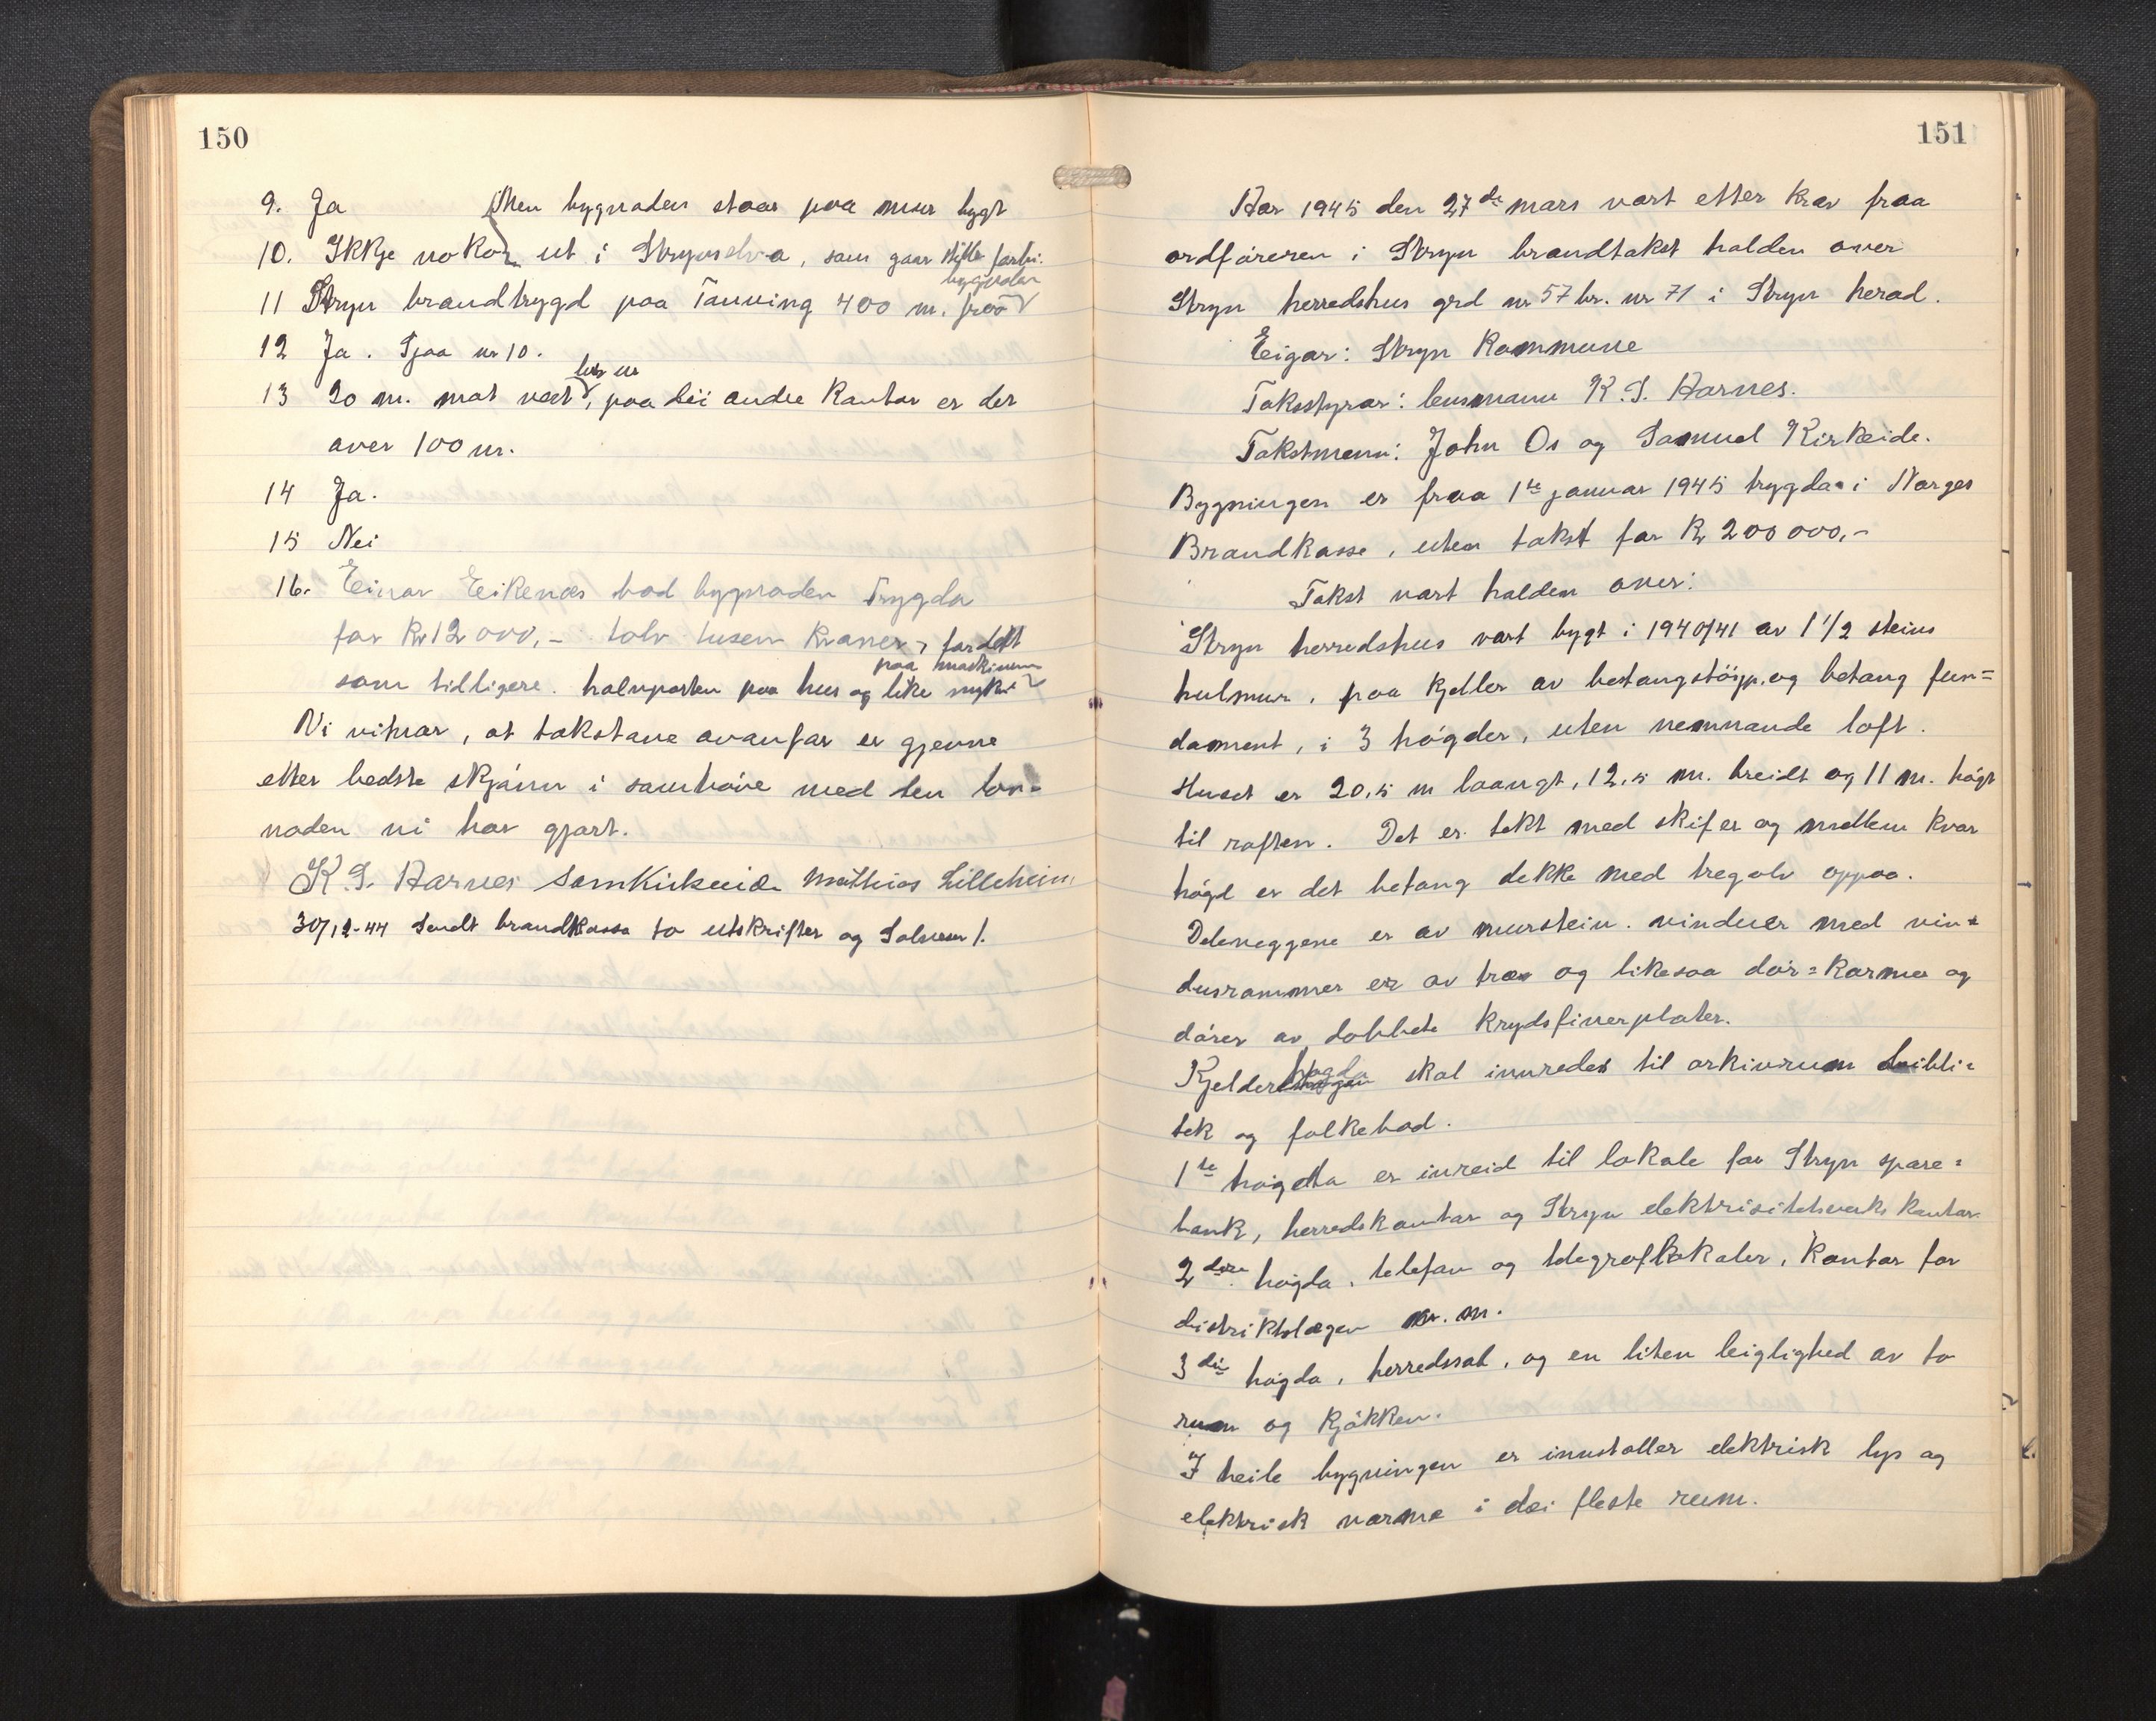 150
9. Ja Men bygnaden staar paa mur bygt
10. Ikkje nokor ut i Strynselva, som gaar stille forbi.
bygnaden
11 Stryn brandtrygd paa Tonning 400 m. fraa
12 Ja. Sjaa nr 10.
13 20 m. mot vest, paa dei andre kantar er det
over 100 m.
14 Ja.
15 Nei
16. Einar Eikenæs bad bygnaden trygda
for kr 12 000,- tolv tusen kroner, fordelt
paa maskinene
som tilligere. halvparten paa hus og like mykje
Vi vitnar, at takstane ovanfor er gjevne
etter bedste skjönn i samhöve med den lov-
naden vi har gjort.
K. S. Aarnes Sam Kirkeide Mathias Lilleheim
30/12-44 Sendt brandkassa to utskrifter og Solvesen 1.
151
Aar 1945 den 27de mars vart etter krav fraa
ordföreren i Stryn brandtakst halden over
Stryn herredshus grd nr 57 br. nr 71 i Stryn herad.
Eigar: Stryn Kommune
Takststyrar: lensmann K. S. Aarnes.
Takstmenn: John Os og Samuel Kirkeide.
Bygningen er fraa 1ste januar 1945 trygda i Norges
Brandkasse, uten takst for Kr 200 000,-
Takst vart halden over:
Stryn herredshus vart bygt i 1940/41 av 1 1/2 steins
hulmur, paa kjeller av betongstöyp, og betong fun=
dament, i 3 högder, uten nemnande loft.
Huset er 20,5 m laangt, 12,5 m. breidt og 11 m. högt
til raften. Det er tekt med skifer og mellem kvar
högd er det betong dekke med tregolv oppaa.
Deleveggene er av murstein. vinduer med vin=
dusrammer er av træ og likesaa dör=karmer og
dörer av dobbete krydsfinerplater.
Kjelderhögda skal innredes til arkivrum bibli=
tek og folkebad.
1ste högda er inreid til lokale for Stryn spare=
bank, herredskontor og Stryn elektrisitetsverks kontor.
2dre högda, telefon og telegraflokaler, kontor for
distriktslægen m. m.
3die högda, herredssal, og en liten leiglighed av to
rum og kjökken.
I heile bygningen er innstaller elektrisk lys og
elektrisk varme i dei fleste rum.